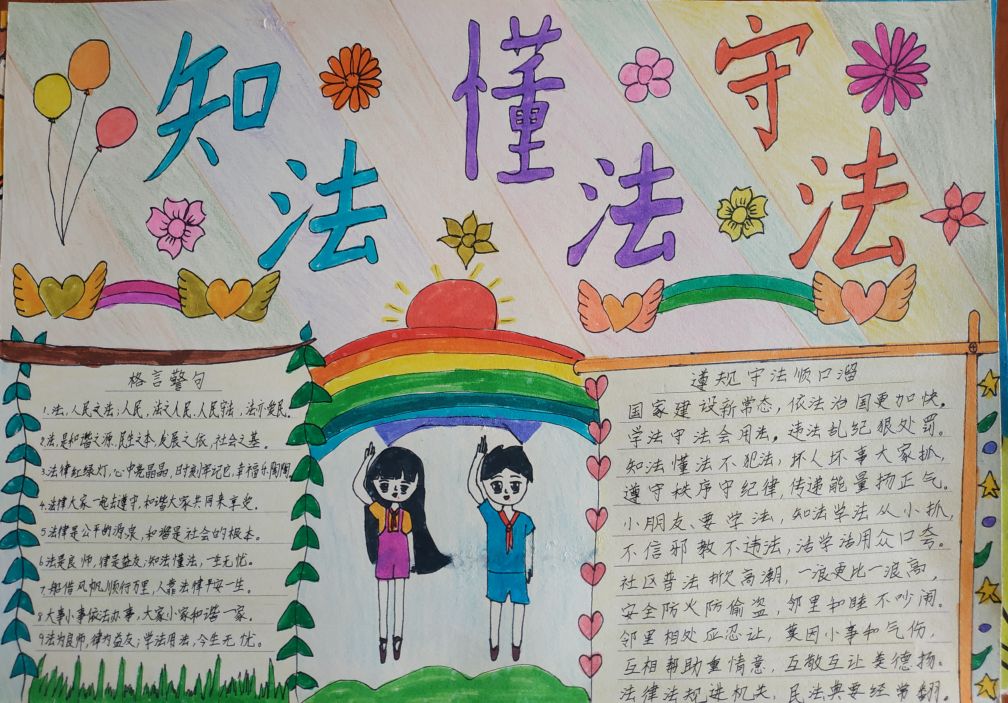 知法 懂法 守法
格言警句
1.法,人民之法;人民,法之人民,人民守法,法亦爱民。
2.法,是和谐之源,民生之本,发展之依,社会之基。
3.法律红绿灯,心中亮晶晶,时刻牢记它,幸福乐陶陶。
4.法律大家一起去遵守,和谐大家共同来享受。
5法律是公平的源泉,和谐是社会的根本。
6法是良师,律是益友;知法懂法,一生无忧。
7一船借风帆顺行万里,人靠法律平安一生。
8大事小事依法办事,大家小家和谐一家。
9法为良师,律为益友;学法用法,今生无忧。
遵规守法顺口溜
国家建设新常态,依法治国更加快。
学法守法会用法,违法乱纪狠处罚。
知法懂法不犯法,坏人坏事大家抓,
遵守秩序守纪律,传递能量扬正气。
小朋友、要学法,知法学法从小抓,
不信邪教不违法,活学活用众口夸。
社区普法掀高潮,一浪更比一浪高,
安全防火防偷盗,邻里和睦不吵闹。
邻里相处应忍让,莫因小事和气伤,
互相帮助重情意,互敬互让美德扬。
法律法规进机关,民法典要经常翻。